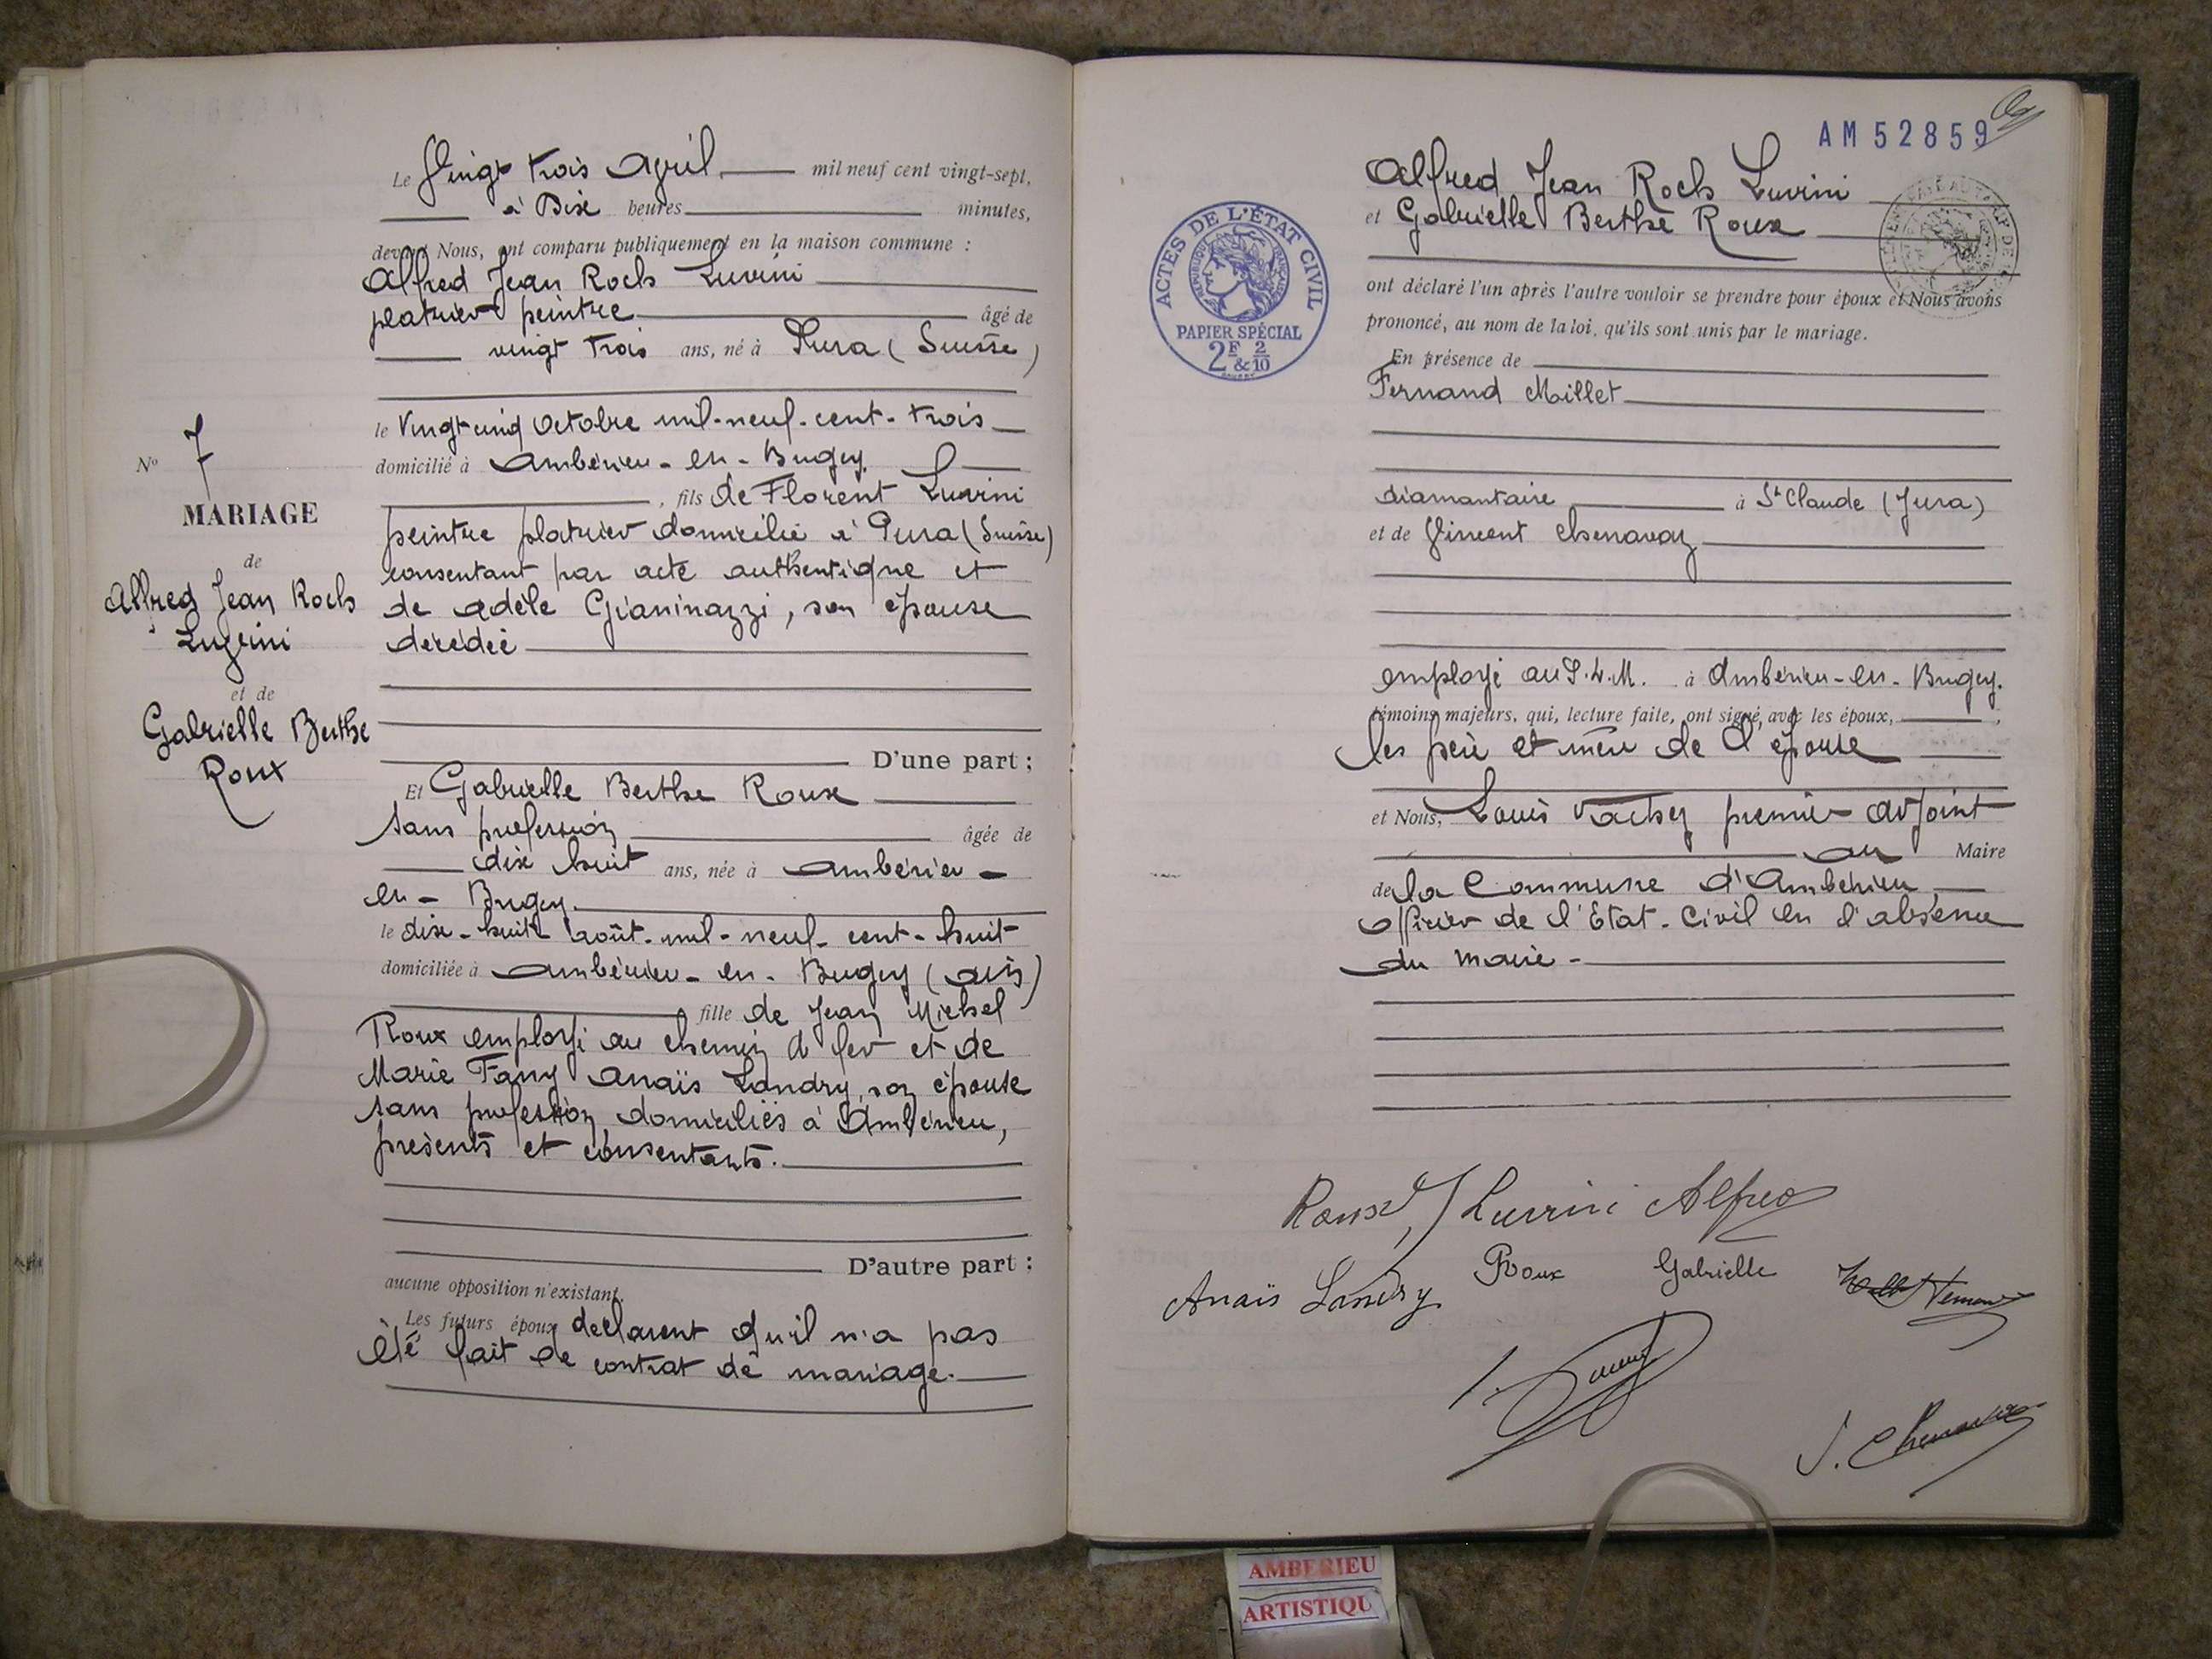 Le Vingt trois Avril mil neuf cent vingt-sept,
à Dix heures minutes,
devant Nous, ont comparu publiquement en la maison commune :
Alfred Jean Roch Luvini
platrier peintre âgé de
vingt trois ans, né à Pura (Suisse)
le Vingt cinq Octobre mil-neuf-cent-trois
domicilié à Ambérieu-en-Bugey
, fils de Florent Luvini
peintre platrier domicilié à Pura (Suisse)
consentant par acte authentique et
de Adèle Gianinazzi, son épouse
décédée
D'une part ;
Et Gabrielle Berthe Roux
sans profession âgée de
dix huit ans, née à Ambérieu-
en-Bugey.
le dix-huit août-mil-neuf-cent-huit
domiciliée à Ambérieu-en-Bugey (Ain)
fille de Jean Michel
Roux employé au chemin de fer et de
Marie Fany Anaïs Landry, son épouse
sans profession domiciliés à Ambérieu,
présents et consentants.
D'autre part ;
aucune opposition n'existant.
Les futurs époux déclarent qu'il n'a pas
été fait de contrat de mariage.
No 7
MARIAGE
de
Alfred Jean Roch
Luvini
et de
Gabrielle Berthe
Roux
AM 52859
Alfred Jean Roch Luvini
et Gabrielle Berthe Roux
ACTES DE L'ÉTAT CIVIL
RÉPUBLIQUE FRANÇAISE
PAPIER SPÉCIAL
2F & 2/10
ont déclaré l'un après l'autre vouloir se prendre pour époux et Nous avons
prononcé, au nom de la loi, qu'ils sont unis par le mariage.
En présence de
Fernand Millet
diamantaire à St Claude (Jura)
et de Vincent Chenavaz
employé au P.L.M. à Ambérieu-en-Bugey.
témoins majeurs, qui, lecture faite, ont signé, avec les époux, ,
les père et mère de l'épouse
et Nous, Louis Vachey premier adjoint
au Maire
de la Commune d'Ambérieu
officier de l'Etat-Civil en l'absence
du maire-
Roux Luvini Alfred
Anaïs Landry Roux Gabrielle
V. Chenavaz
AMBERIEU
ARTISTIQU